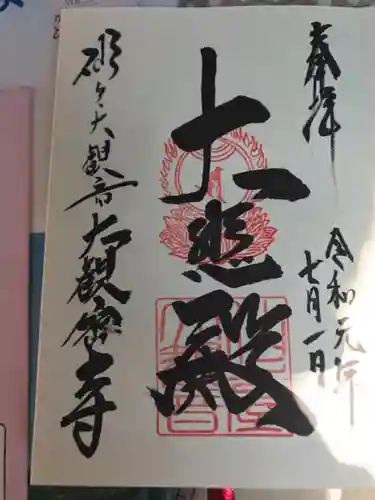 奉拝
令和元年
七月一日
大悲殿
大観音 大観密寺